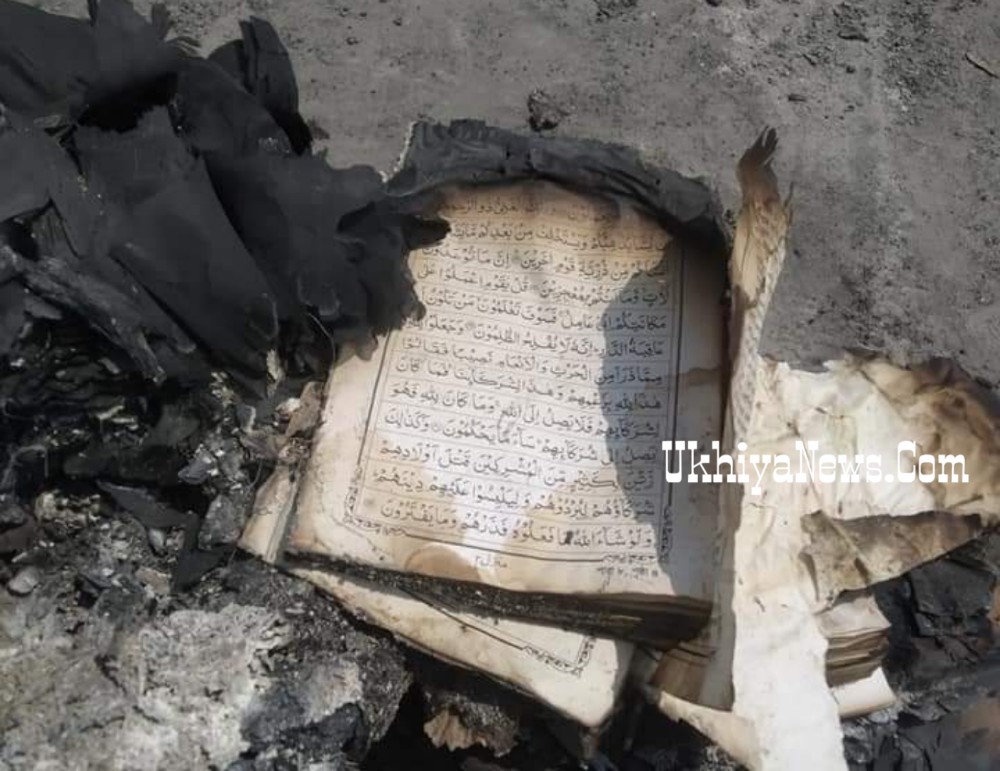 الْغَنِىُّ ذُو الرَّحْمَةِ
وَيَسْتَخْلِفْ مِنْۢ بَعْدِكُمْ مَّا يَشَآءُ
مِّنْ ذُرِّيَّةِ قَوْمٍ اٰخَرِيْنَ اِنَّ مَا تُوْعَدُوْنَ
لَاٰتٍ وَّمَآ اَنْتُمْ بِمُعْجِزِيْنَ قُلْ يٰقَوْمِ اعْمَلُوْا عَلٰى
مَكَانَتِكُمْ اِنِّىْ عَامِلٌ فَسَوْفَ تَعْلَمُوْنَ مَنْ تَكُوْنُ
عَاقِبَةُ الدَّارِ اِنَّهٗ لَا يُفْلِحُ الظّٰلِمُوْنَ وَجَعَلُوْا لِلّٰهِ
مِمَّا ذَرَاَ مِنَ الْحَرْثِ وَالْاَنْعَامِ نَصِيْبًا فَقَالُوْا
هٰذَا لِلّٰهِ بِزَعْمِهِمْ وَهٰذَا لِشُرَكَآئِنَا فَمَا كَانَ
لِشُرَكَآئِهِمْ فَلَا يَصِلُ اِلَى اللّٰهِ وَمَا كَانَ لِلّٰهِ فَهُوَ
يَصِلُ اِلٰى شُرَكَآئِهِمْ سَآءَ مَا يَحْكُمُوْنَ وَكَذٰلِكَ
زَيَّنَ لِكَثِيْرٍ مِّنَ الْمُشْرِكِيْنَ قَتْلَ اَوْلَادِهِمْ
شُرَكَآؤُهُمْ لِيُرْدُوْهُمْ وَلِيَلْبِسُوْا عَلَيْهِمْ دِيْنَهُمْ
وَلَوْ شَآءَ اللّٰهُ مَا فَعَلُوْهُ فَذَرْهُمْ وَمَا يَفْتَرُوْنَ
منزل ٢
UkhiyaNews.Com